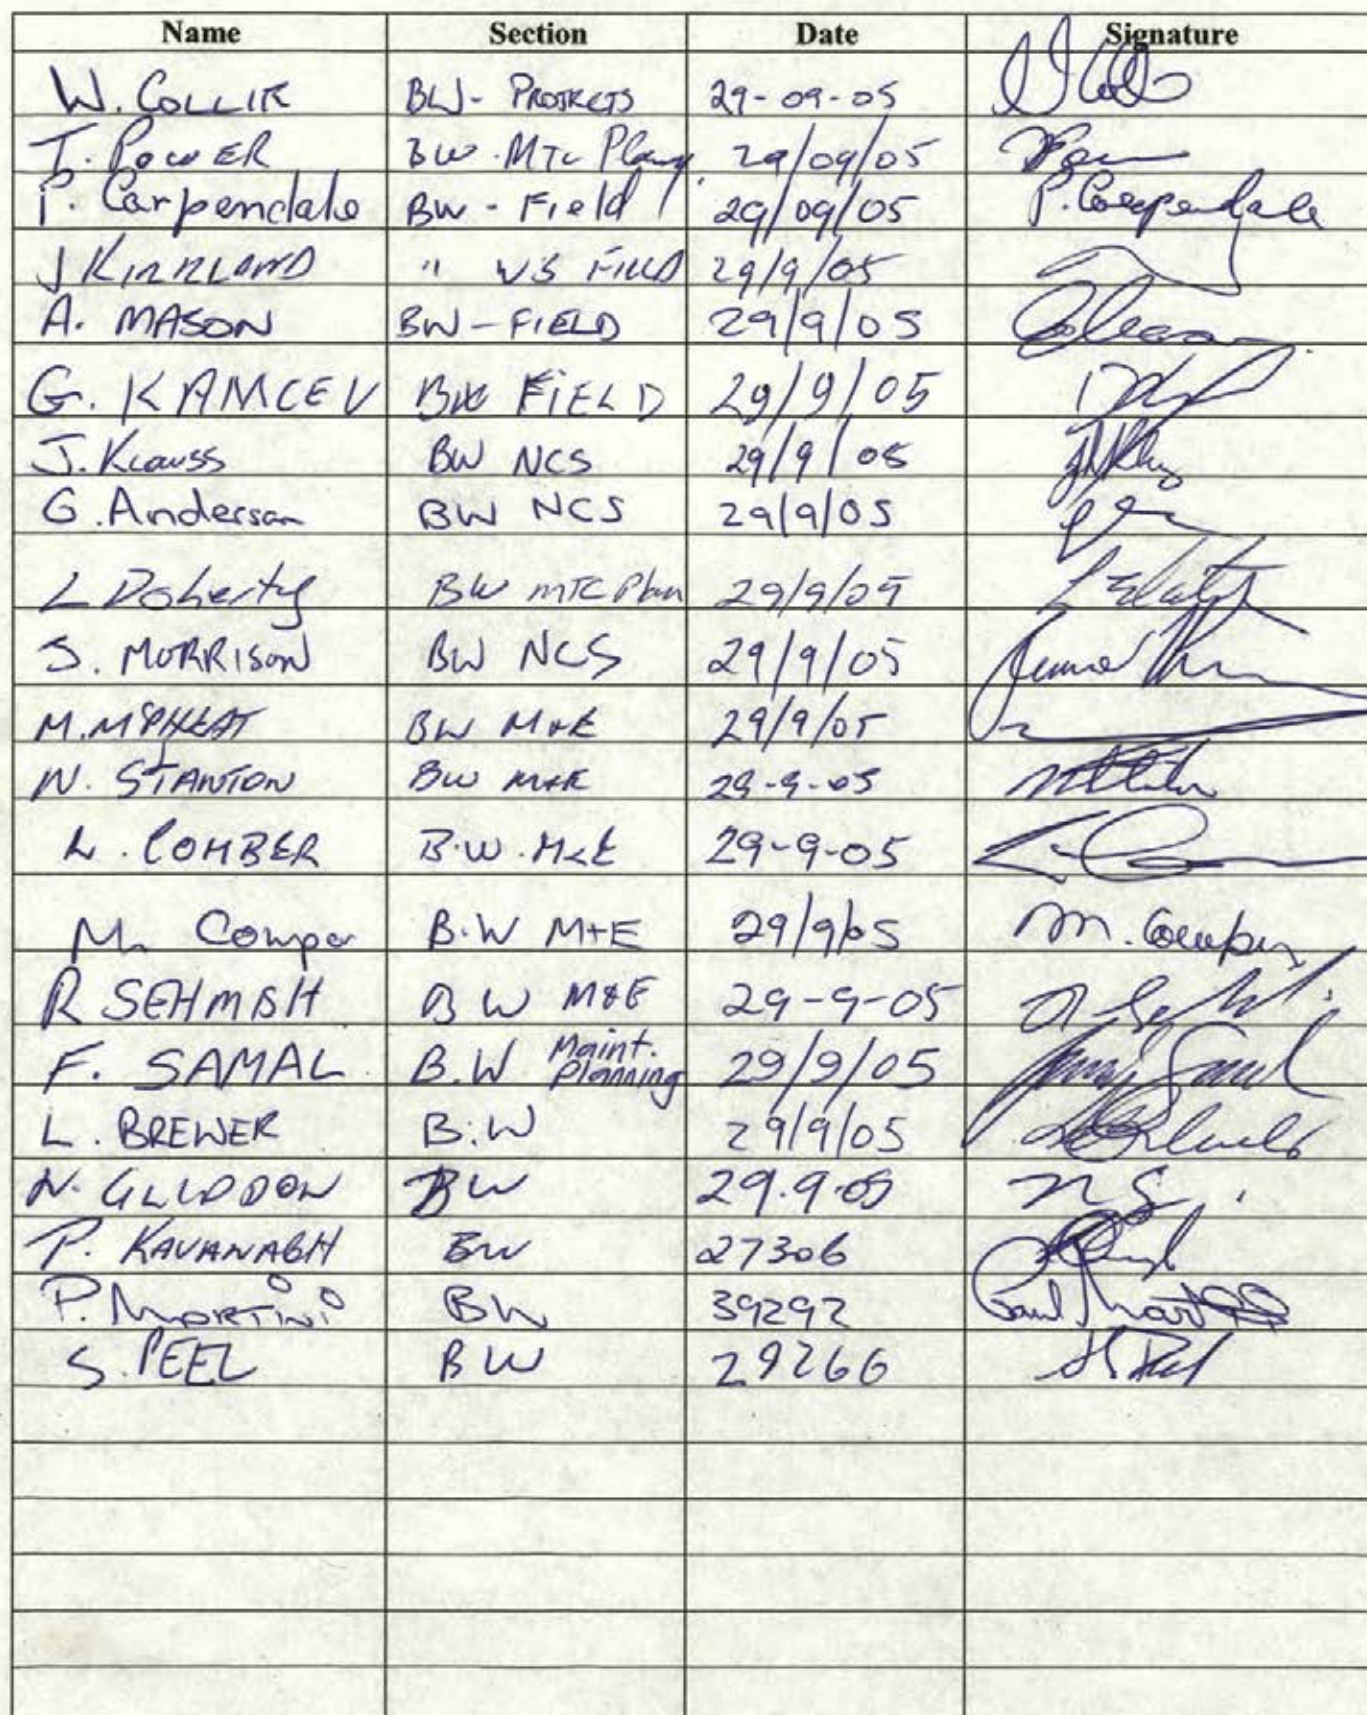 Name Section Date Signature
W. COLLIE BW - PROJECTS 29-09-05
T. POWER BW. MTC 29/09/05
P. Carpendale BW - Field 29/09/05 P. Carpendale
J KIRKLAND " WS FIELD 29/9/05
A. MASON BW - FIELD 29/9/05
G. KAMCEV BW FIELD 29/9/05
J. Krauss BW NCS 29/9/05
G. Anderson BW NCS 29/9/05
L Doherty BW MTC Plan 29/9/05
S. MORRISON BW NCS 29/9/05
M. MCPHEAT BW M+E 29/9/05
N. STANTON BW M+E 29-9-05
L. COMBER B.W. M&E 29-9-05
M. B.W M+E 29/9/05 M.
R SEHMBH B W M&E 29-9-05
F. SAMAL B.W Maint. Planning 29/9/05
L. BREWER B.W 29/9/05
N. GLIDDON BW 29.9.05
P. KAVANAGH BW 27306
P. MARTINI BW 39292 Paul
S. PEEL BW 29266